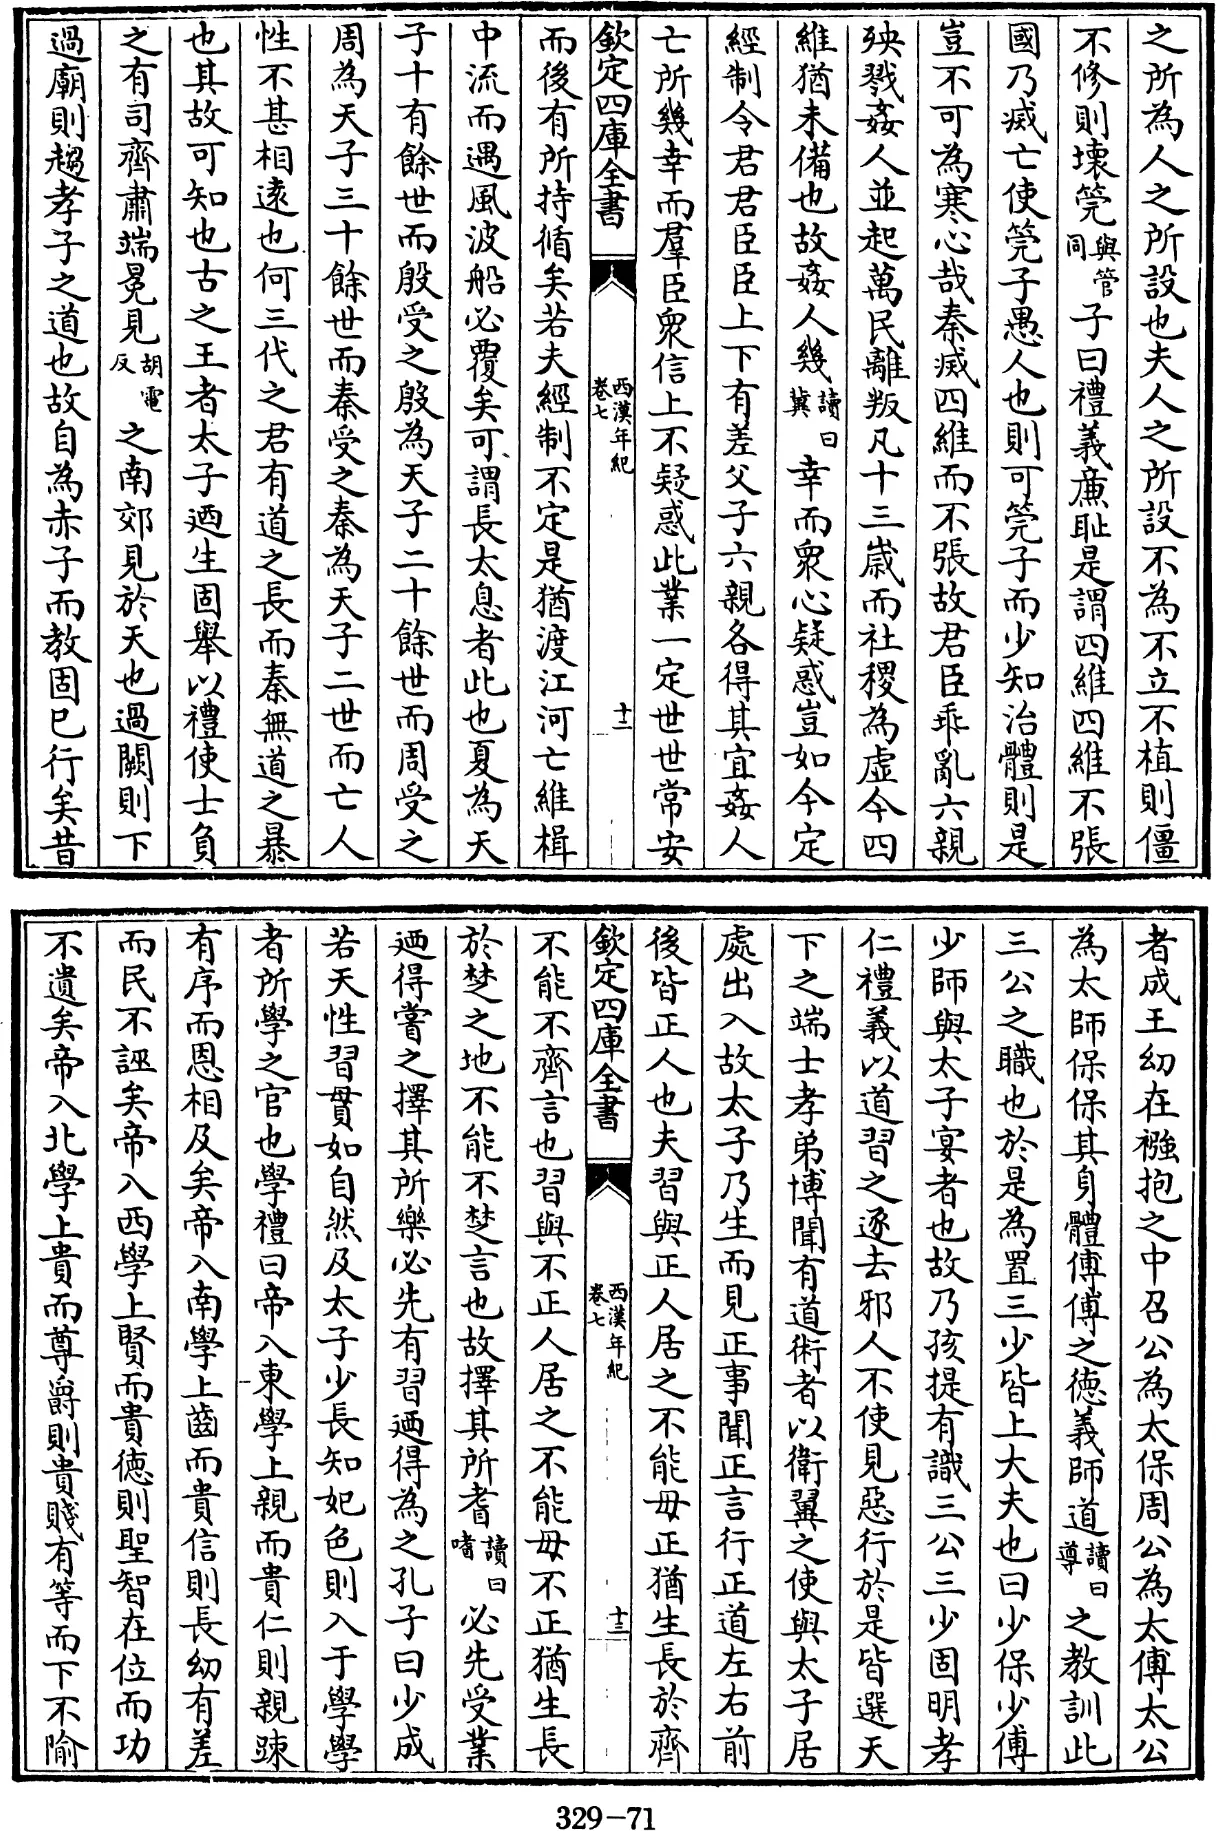 之所為人之所設也夫人之所設不為不立不植則僵
不修則壞筦與管同子曰禮義亷耻是謂四維四維不張
國乃㓕亡使筦子愚人也則可筦子而少知治體則是
豈不可為寒心哉秦㓕四維而不張故君臣乖亂六親
殃戮姦人並起萬民離叛凡十三嵗而社稷為虛今四
維猶未備也故姦人幾讀曰冀幸而衆心疑惑豈如今定
經制令君君臣臣上下有差父子六親各得其宜姦人
亡所幾幸而羣臣衆信上不疑惑此業一定世世常安
欽定四庫全書 西漢年紀 卷七 十二
而後有所持循矣若夫經制不定是猶渡江河亡維楫
中流而遇風波船必覆矣可謂長太息者此也夏為天
子十有餘世而殷受之殷為天子二十餘世而周受之
周為天子三十餘世而秦受之秦為天子二世而亡人
性不甚相逺也何三代之君有道之長而秦無道之暴
也其故可知也古之王者太子迺生固舉以禮使士負
之有司齊肅端冕見胡電反之南郊見於天也過闕則下
過廟則趨孝子之道也故自為赤子而教固已行矣昔
者成王幼在襁抱之中召公為太保周公為太傅太公
為太師保保其身體傅傅之徳義師道讀曰導之教訓此
三公之職也於是為置三少皆上大夫也曰少保少傅
少師與太子宴者也故乃孩提有識三公三少固明孝
仁禮義以道習之逐去邪人不使見惡行於是皆選天
下之端士孝弟博聞有道術者以衛翼之使與太子居
處出入故太子乃生而見正事聞正言行正道左右前
後皆正人也夫習與正人居之不能毋正猶生長於齊
欽定四庫全書 西漢年紀 卷七 十三
不能不齊言也習與不正人居之不能毋不正猶生長
於楚之地不能不楚言也故擇其所耆讀曰嗜必先受業
迺得嘗之擇其所樂必先有習迺得為之孔子曰少成
若天性習貫如自然及太子少長知妃色則入于學學
者所學之官也學禮曰帝入東學上親而貴仁則親踈
有序而恩相及矣帝入南學上齒而貴信則長幼有差
而民不誣矣帝入西學上賢而貴徳則聖智在位而功
不遺矣帝入北學上貴而尊爵則貴賤有等而下不隃
329-71